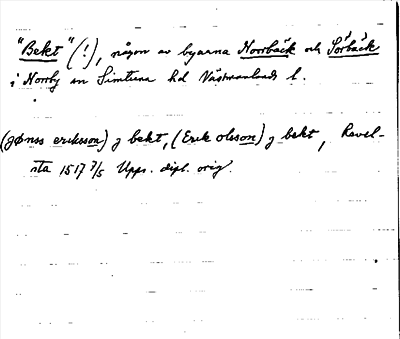 "Bekt" (!), någon av byarna Norrbäck och Sörbäck
i Norrby sn Simtuna hd Västmanlands l.
(jønss eriksson) j bekt, (Erik olsson) j bekt, Ravel-
sta 1517 7/5 Upps. dipl. orig.